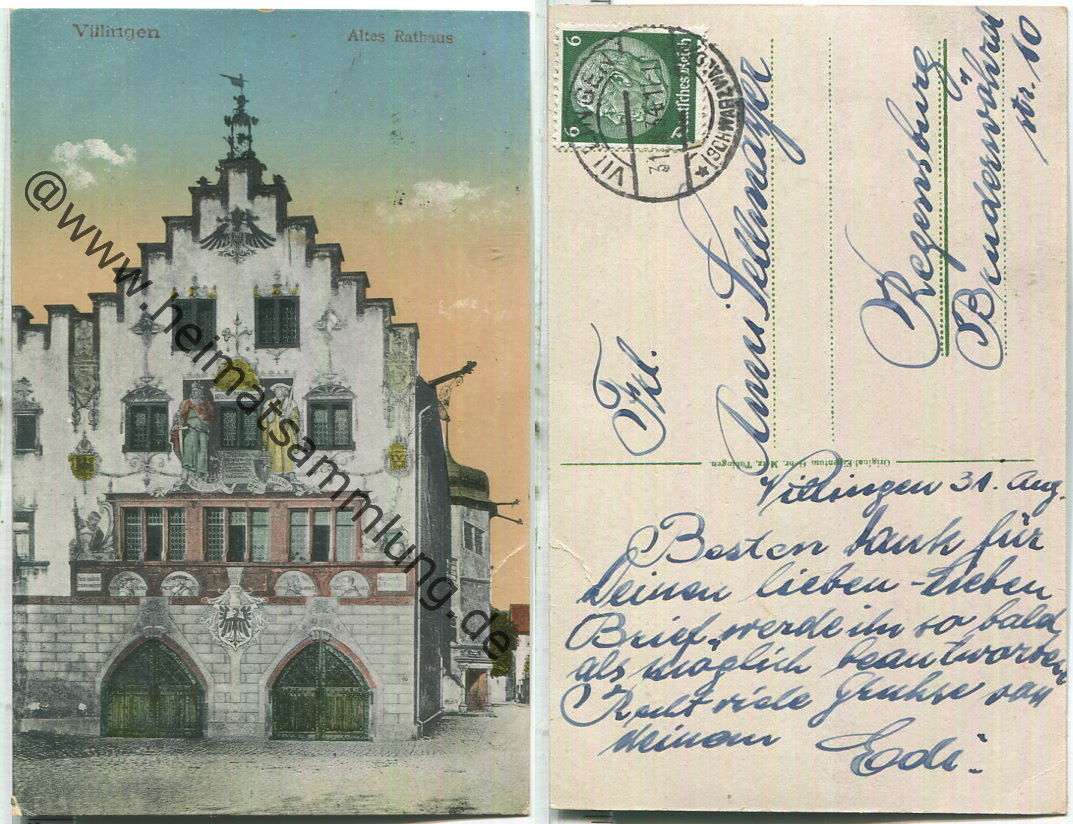 Villingen
Altes Rathaus
@www.heimatsammlung.de
6
6
Deutsches Reich
VILLINGEN
(SCHWARZW
31.
Frl.
Regensburg
str. 10
Original-Eigentum Gebr. Metz, Tübingen.
Villingen 31. Aug.
Besten Dank für
Deinen lieben - lieben
Brief, werde ihn so bald
als möglich beantworten
Recht viele Grüsse von
Deinem Edi.